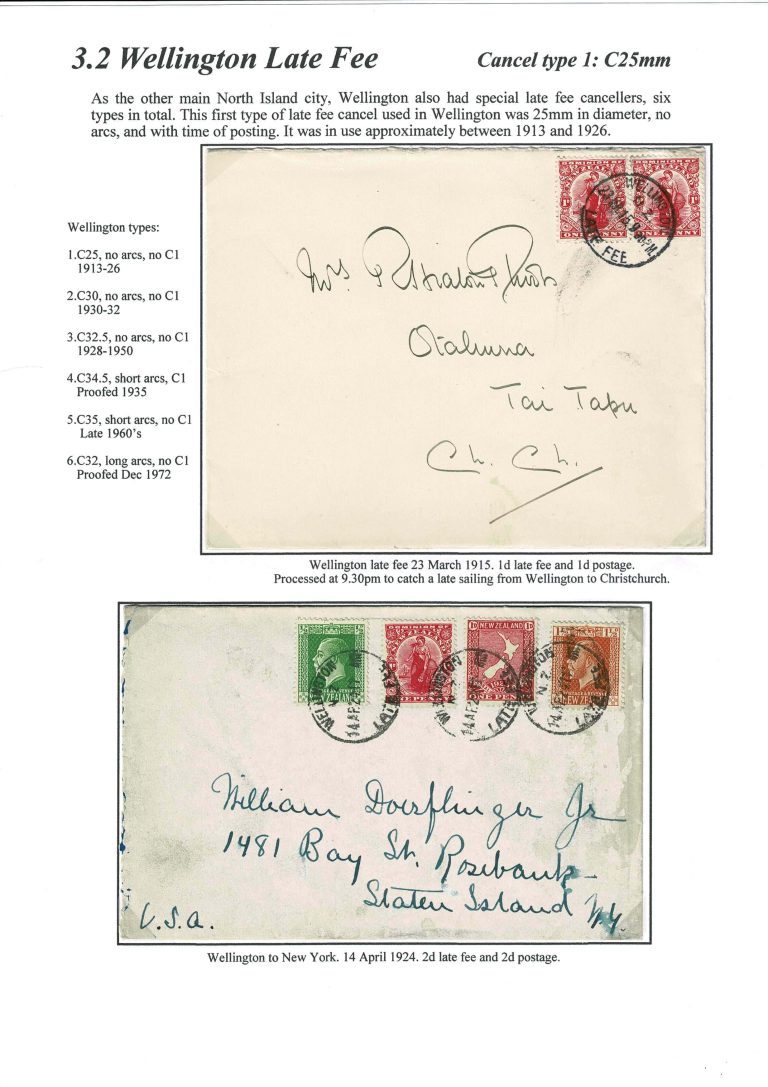 3.2 Wellington Late Fee
Cancel type 1: C25mm
As the other main North Island city, Wellington also had special late fee cancellers, six
types in total. This first type of late fee cancel used in Wellington was 25mm in diameter, no
arcs, and with time of posting. It was in use approximately between 1913 and 1926.
Wellington types:
1.C25, no arcs, no C1
1913-26
2.C30, no arcs, no C1
1930-32
3.C32.5, no arcs, no C1
1928-1950
4.C34.5, short arcs, C1
Proofed 1935
5.C35, short arcs, no C1
Late 1960's
6.C32, long arcs, no C1
Proofed Dec 1972
DOMINION OF
DOMINION OF
1d
1d
ONE PENNY
ONE PENNY
LATE FEE
Mrs
Otahuna
Tai Tapu
Ch. Ch.
Wellington late fee 23 March 1915. 1d late fee and 1d postage.
Processed at 9.30pm to catch a late sailing from Wellington to Christchurch.
DOMINION OF
1D NEW ZEALAND 1D
WELLINGTON
14 AP 2
LATE FEE
WELLINGTON
N Z
14 AP 2
LATE
N Z
14 AP 2
LATE FEE
William Doerflinger Jr
1481 Bay St. Rosebank
Staten Island N.Y.
U.S.A.
Wellington to New York. 14 April 1924. 2d late fee and 2d postage.